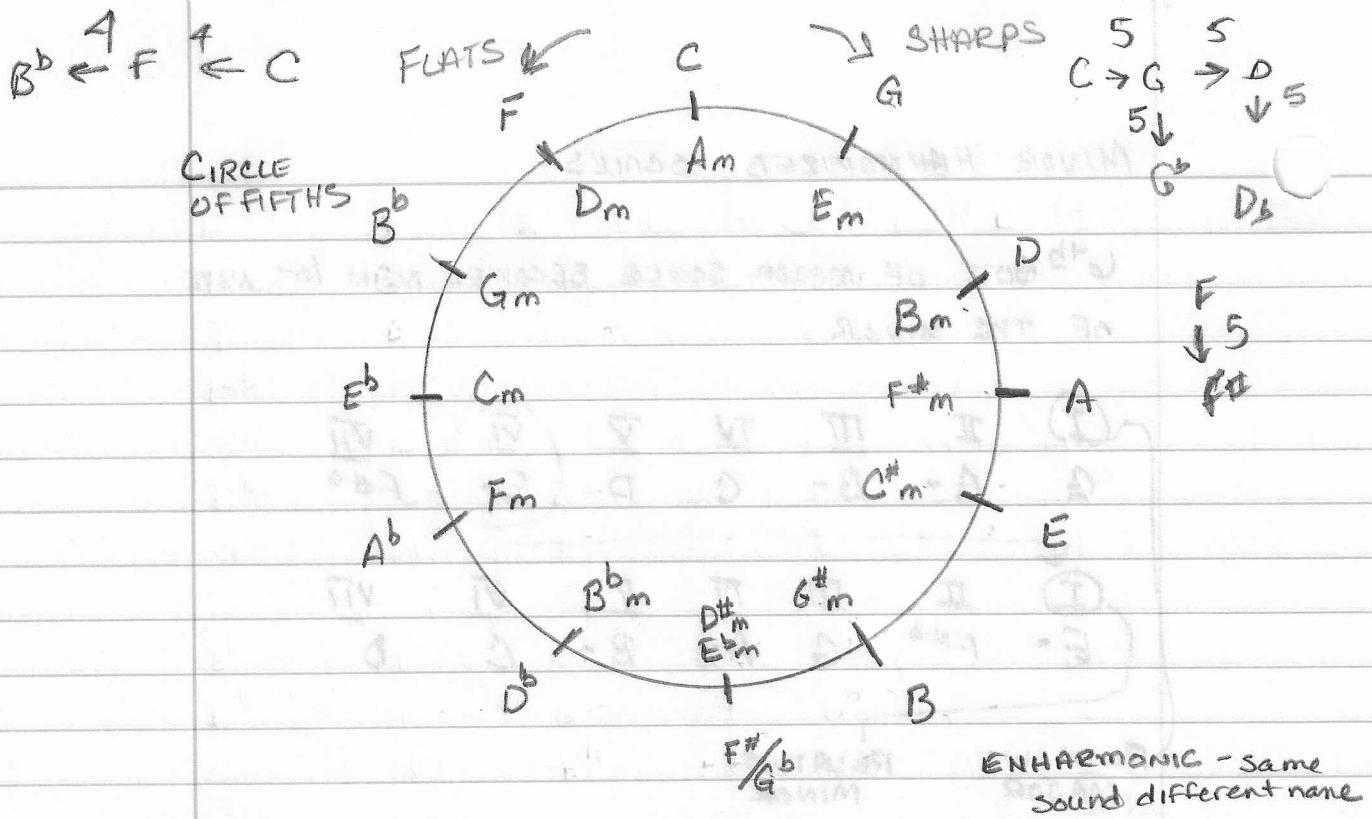 B♭ ← F ← C
4 4
FLATS
SHARPS
5 5
C → G → D
5↓ ↓5
G♭ D♭
CIRCLE
OF FIFTHS
C
G
D
A
E
B
F#/G♭
D♭
A♭
E♭
B♭
F
Am
Em
Bm
F#m
C#m
G#m
D#m
E♭m
B♭m
Fm
Cm
Gm
Dm
F
↓ 5
ENHARMONIC - same
sound different name